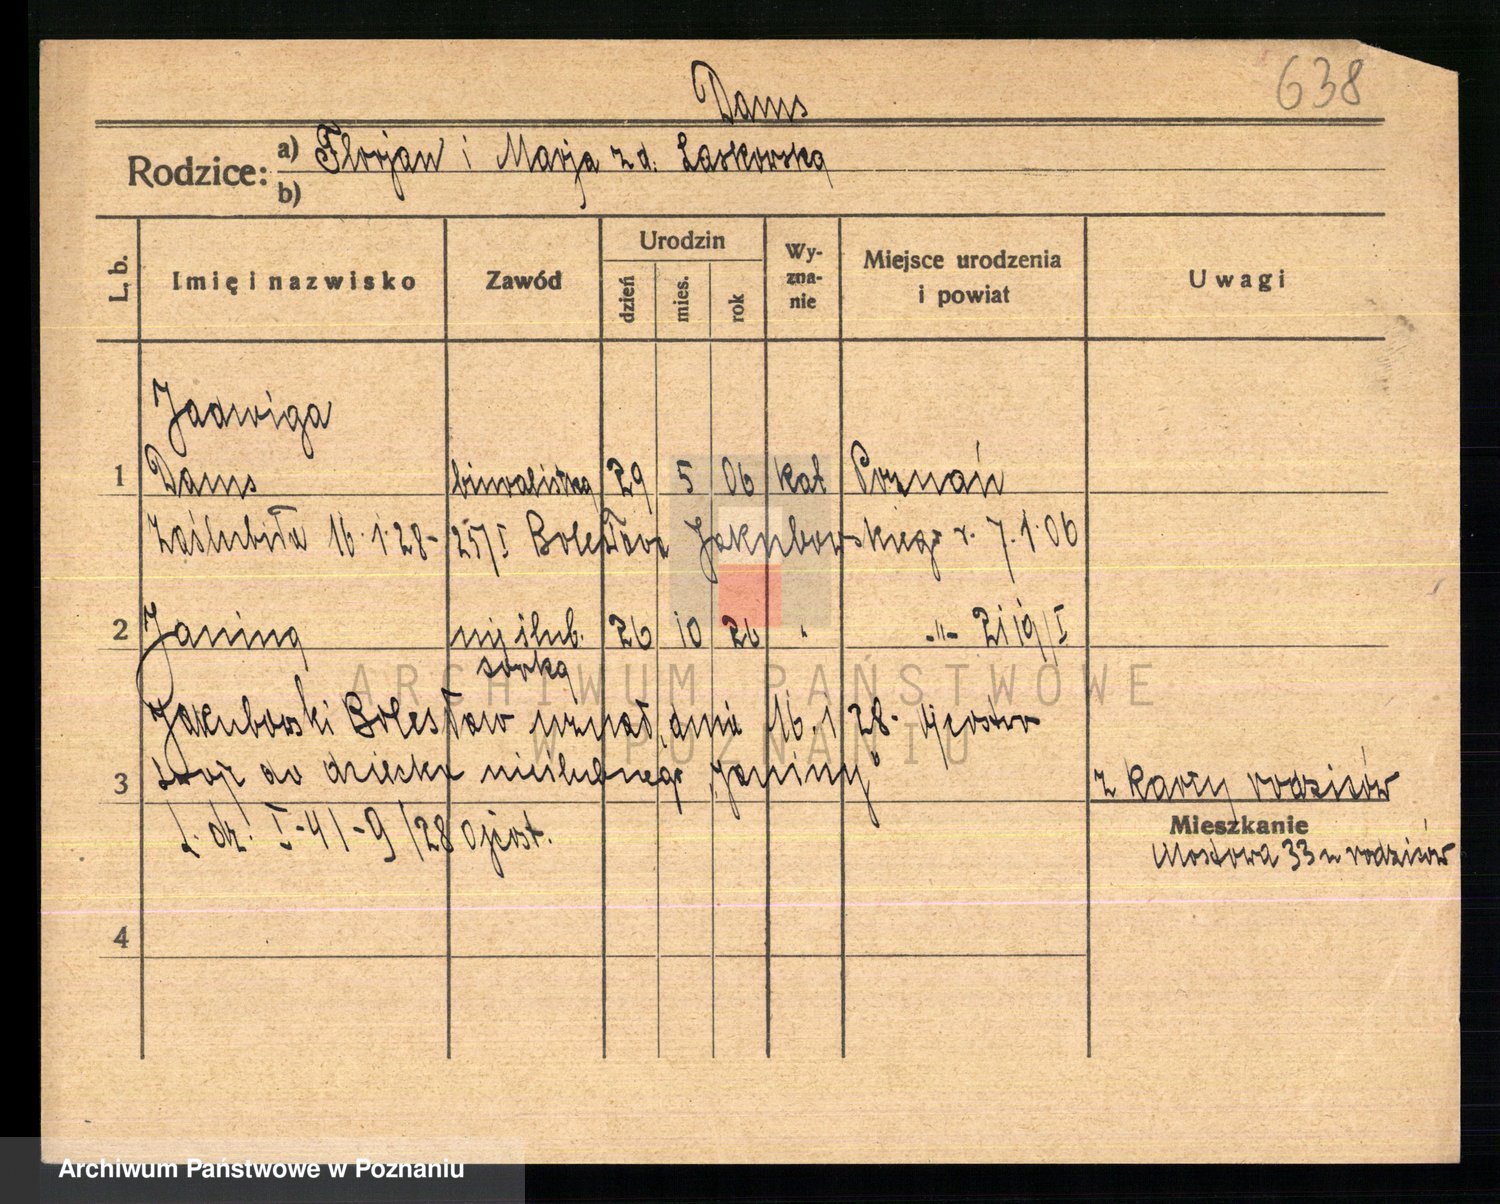 638
Dams
Rodzice: a) Florjan i Marja z d. Laskowska
b)
L. b. Imię i nazwisko Zawód Urodzin dzień mies. rok Wy-zna-nie Miejsce urodzenia i powiat Uwagi
Jadwiga
1 Dams biuralistka 29 5 06 kat Poznań
Zaślubiła 16.1.28- 25/I Bolesława Jakubowskiego r. 7.1.06
2 Janina nieślub. 26 10 26 " -"- 2119/I
córka
Jakubowski Bolesław uznał dnia 16.1 28- ojcostwo
swoje do dziecka nieślubnego „Janiny"
3 z karty rodziców
L. dz. I-41-9/28 Ojcost.
Mieszkanie
Mostowa 33 u rodziców
4
ARCHIWUM PAŃSTWOWE
W POZNANIU
Archiwum Państwowe w Poznaniu